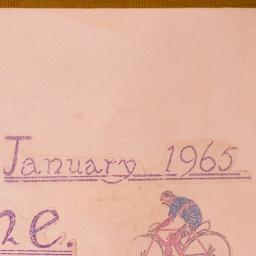 January 1965
ne.